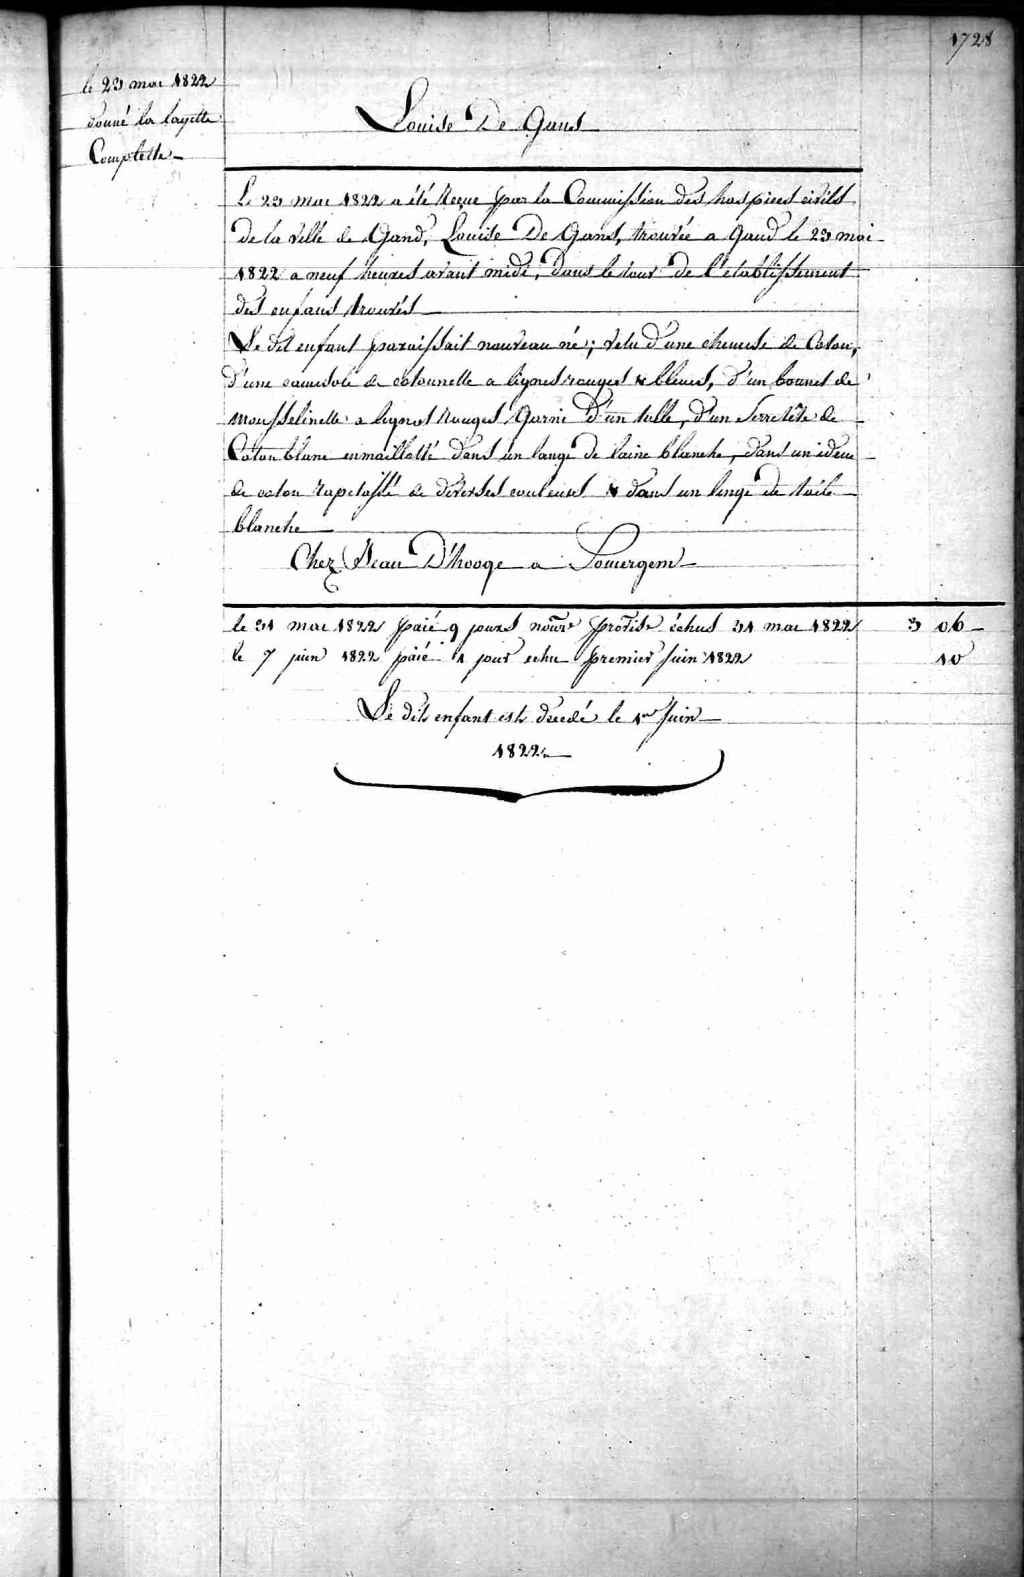 1728
le 23 mai 1822
donné la layette
Complette
Louise De Gans
Le 23 mai 1822 a été Reçue par la Commission des hospices civils
de la ville de Gand, Louise De Gans, trouvée a Gand le 23 mai
1822 a neuf heures avant midi, dans le tour de l'établissement
des enfans trouvés
Le dit enfant paraissait nouveau né; vetu d'une chemise de Coton,
d'une camisole de cotonnelle a lignes rouges & bleues, d'un bonnet de
mousselinette a lignes Rouges Garni d'un tulle, d'un Serretête de
Coton blanc enmaillotté dans un lange de laine blanche, dans un idem
de coton rapetassé de diverses couleurs & dans un linge de toile
blanche
Chez Jean D'hooge a Somergem
le 31 mai 1822 paié 9 jours nourre provisre échus 31 mai 1822 3 06
le 7 juin 1822 paié 1 jour echu premier juin 1822 10
Le dit enfant est decedé le 1er Juin
1822.